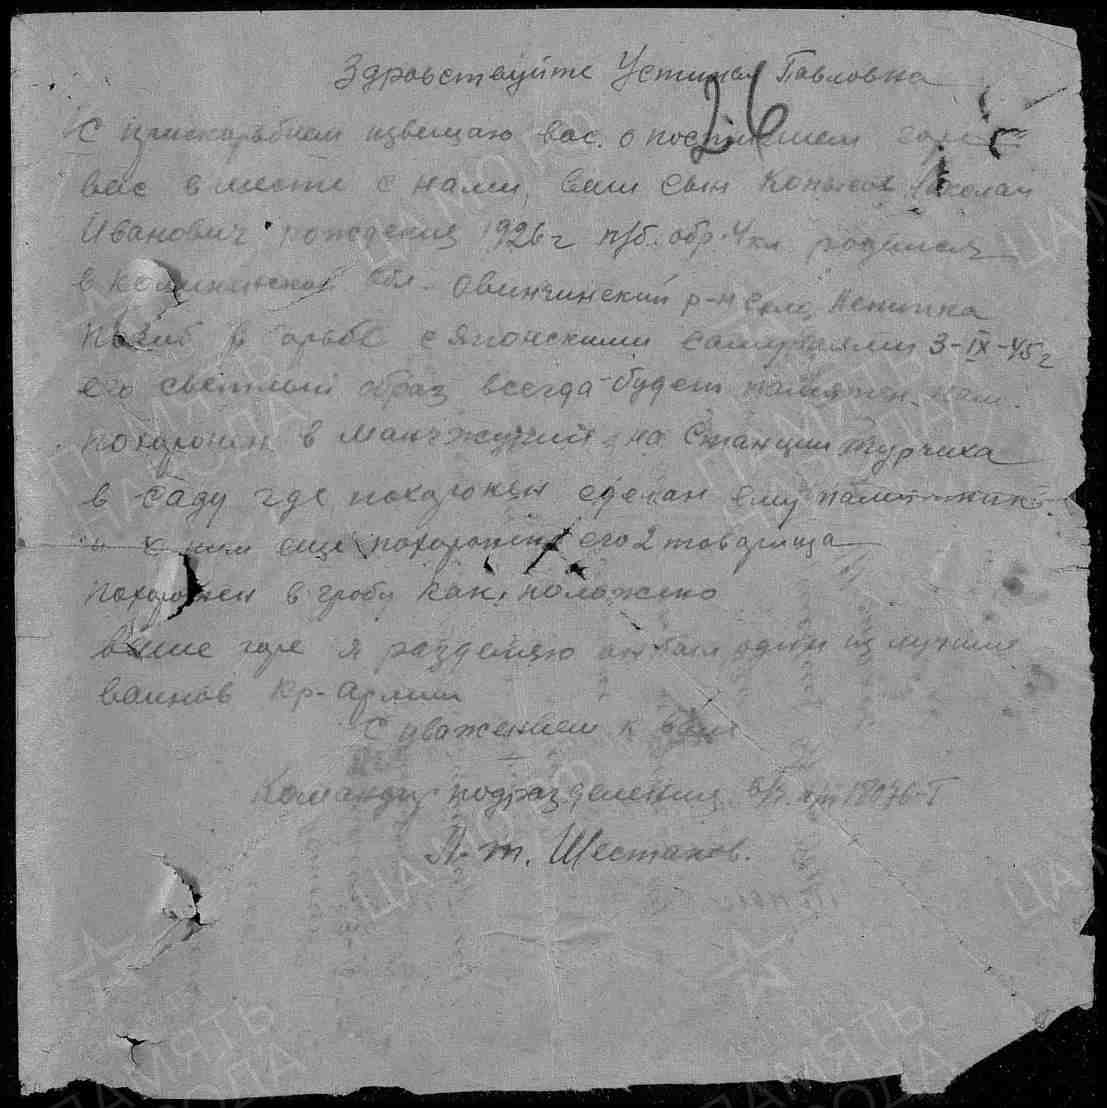 Здравствуйте Устинья Павловна
26
С прискорбием извещаю вас о постигшем горе
вас вместе с нами, ваш сын Николай
Иванович рождения 1926 г п/б. обр. 4 кл родился
в Калининской обл. Овинчинский р-н село
Погиб в борьбе с Японскими самураями 3-IX-45 г
его светлый образ всегда будет памятен нам.
похоронен в Манчжурии на Станции Турчиха
в саду где похоронен сделан ему памятник.
и с ним еще похоронены его 2 товарища
похоронен в гробу как положено
ваше горе я разделяю он был один из лучших
воинов Кр-Армии
С уважением к вам
Командир подразделения в/ч п/п 18076-Т
Л-т. Шестаков.